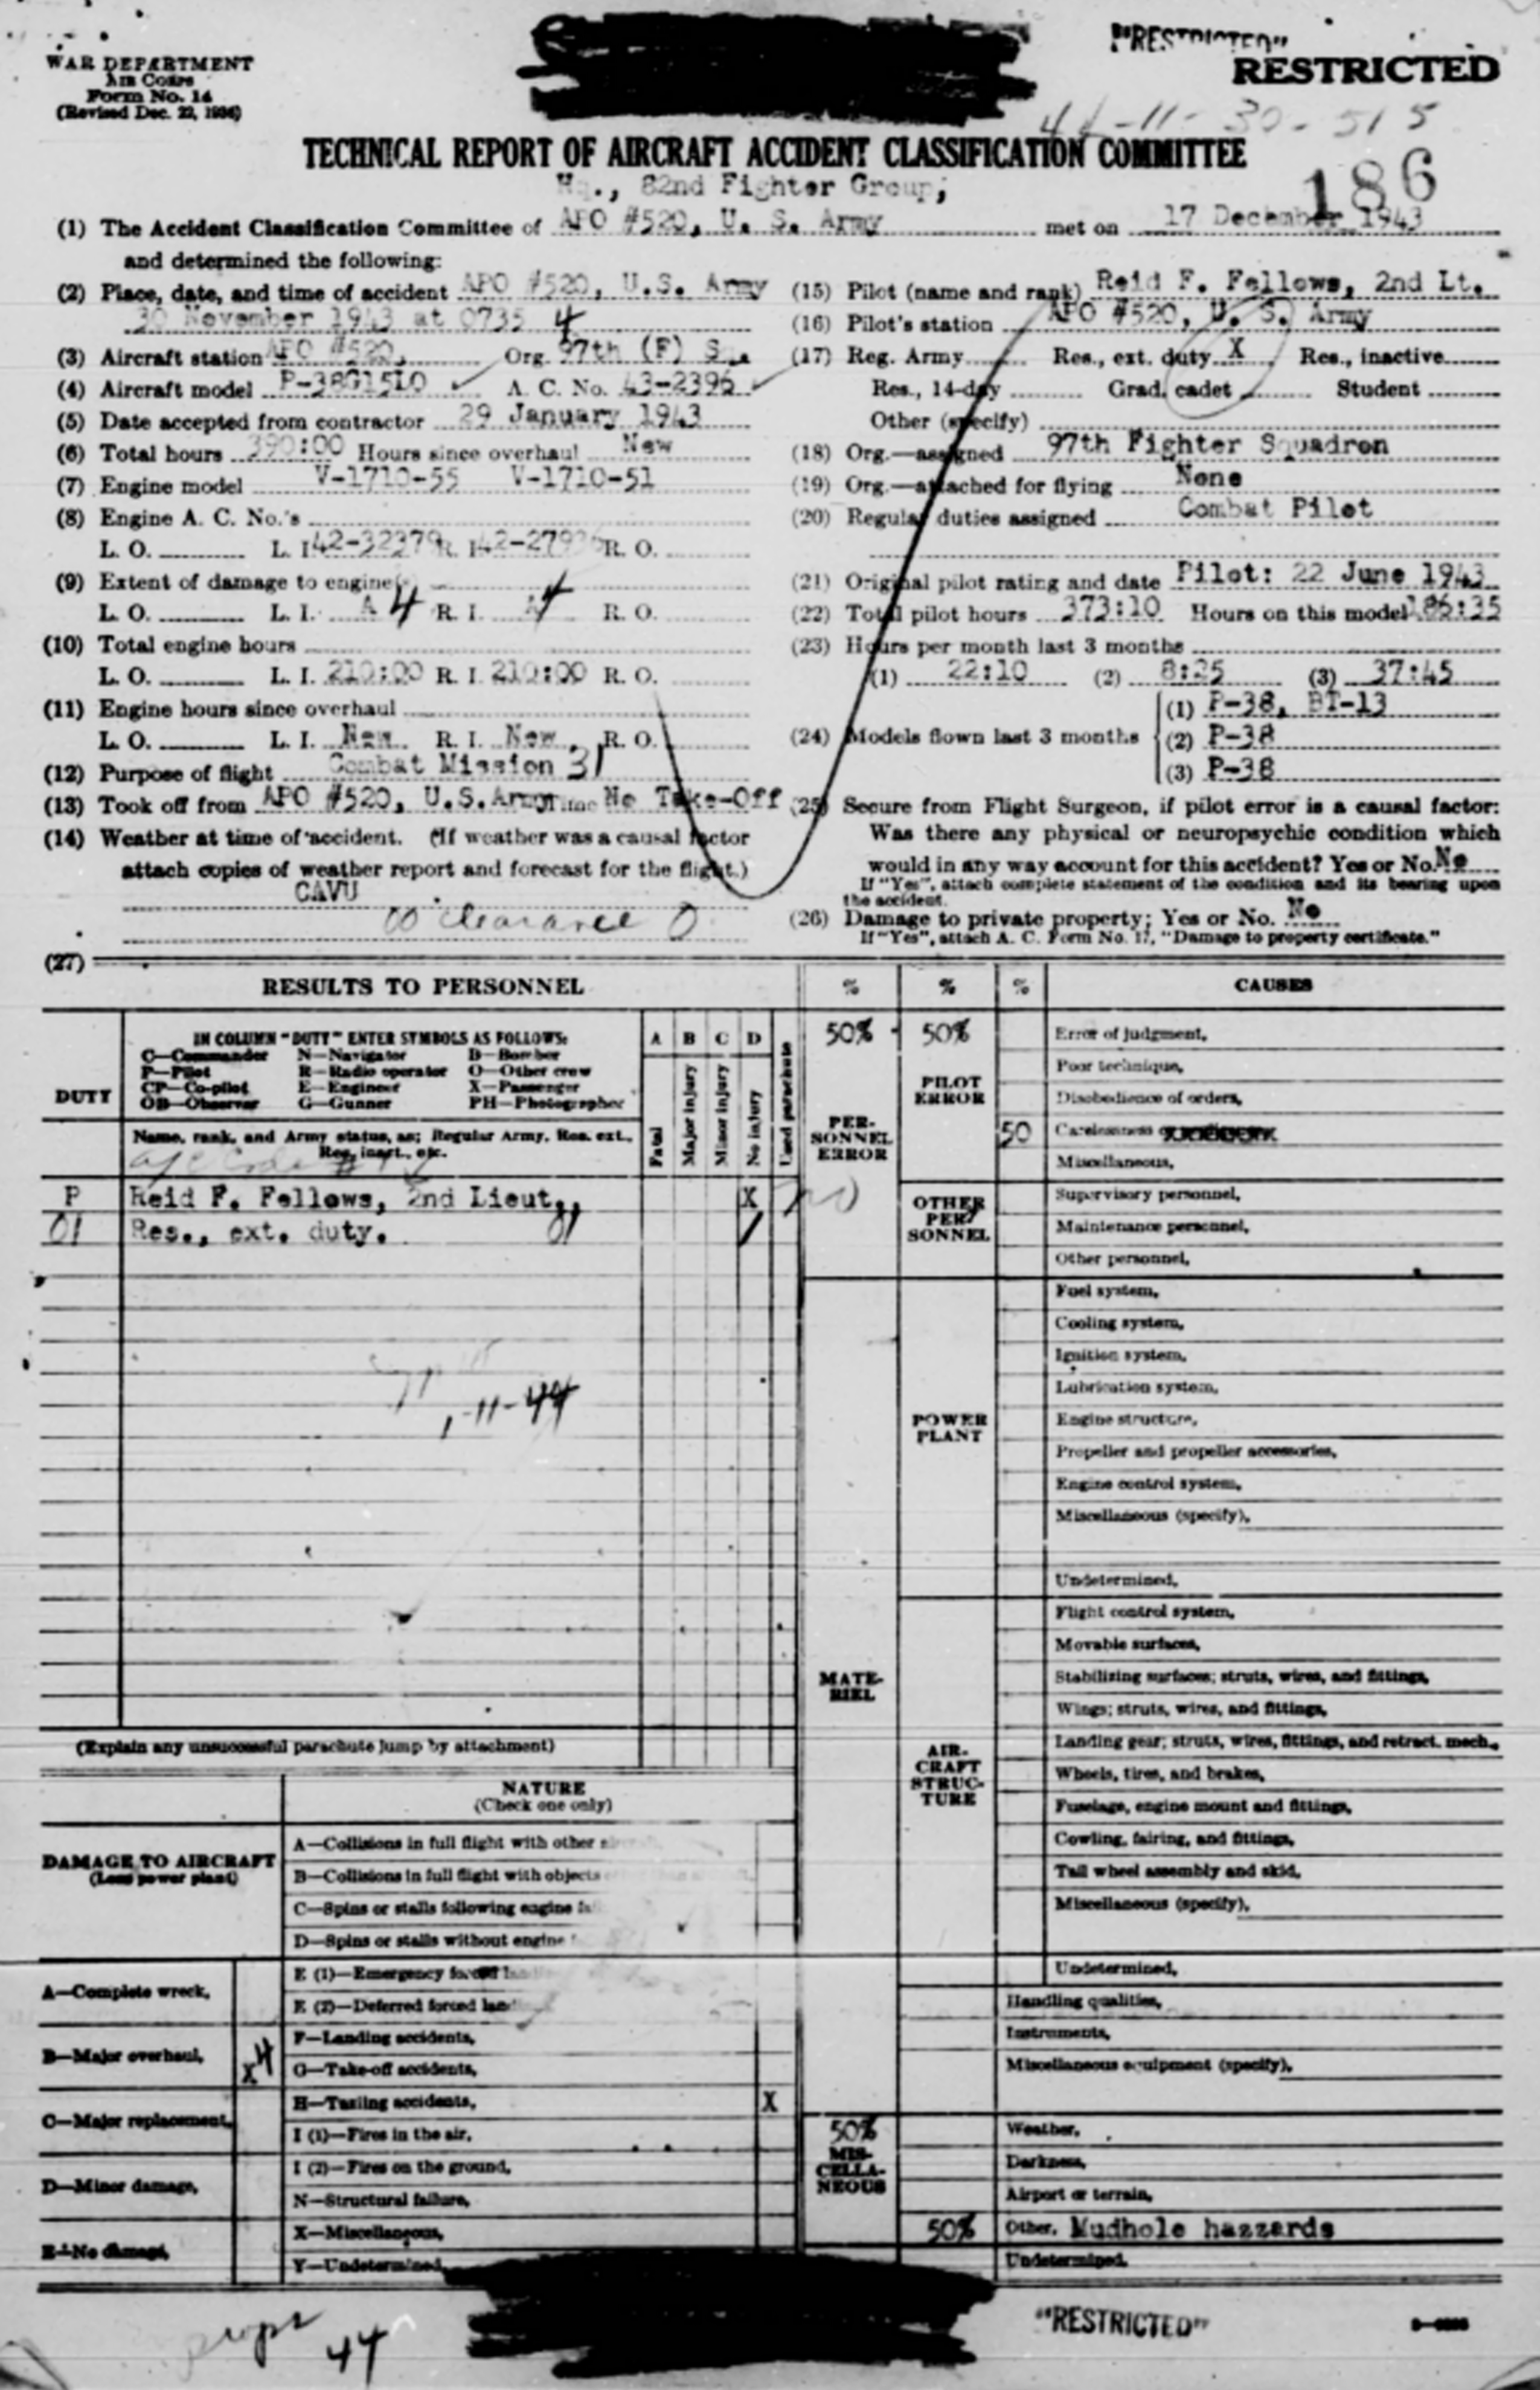 WAR DEPARTMENT
Air Corps
Form No. 14
(Revised Dec. 22, 1936)
"RESTRICTED"
RESTRICTED
44-11-30-515
TECHNICAL REPORT OF AIRCRAFT ACCIDENT CLASSIFICATION COMMITTEE
186
Hq., 82nd Fighter Group,
(1) The Accident Classification Committee of APO #520, U. S. Army met on 17 December 1943
and determined the following:
(2) Place, date, and time of accident APO #520, U.S. Army
30 November 1943 at 0735 4
(3) Aircraft station APO #520, Org. 97th (F) S
(4) Aircraft model P-38G15LO A. C. No. 43-2396
(5) Date accepted from contractor 29 January 1943
(6) Total hours 390:00 Hours since overhaul New
(7) Engine model V-1710-55 V-1710-51
(8) Engine A. C. No.'s
L. O. L. I. 42-32379 R. I. 42-2793 R. O.
(9) Extent of damage to engine
L. O. L. I. A 4 R. I. 4 R. O.
(10) Total engine hours
L. O. L. I. 210:00 R. I. 210:00 R. O.
(11) Engine hours since overhaul
L. O. L. I. New R. I. New R. O.
(12) Purpose of flight Combat Mission 31
(13) Took off from APO #520, U.S.Army Time No Take-Off
(14) Weather at time of accident. (If weather was a causal factor
attach copies of weather report and forecast for the flight.)
CAVU
clearance 0
(15) Pilot (name and rank) Reid F. Fellows, 2nd Lt.
(16) Pilot's station APO #520, U. S. Army
(17) Reg. Army Res., ext. duty X Res., inactive
Res., 14-day Grad. cadet Student
Other (specify)
(18) Org.—assigned 97th Fighter Squadron
(19) Org.—attached for flying None
(20) Regular duties assigned Combat Pilot
(21) Original pilot rating and date Pilot: 22 June 1943
(22) Total pilot hours 373:10 Hours on this model 186:35
(23) Hours per month last 3 months
(1) 22:10 (2) 8:25 (3) 37:45
(24) Models flown last 3 months
(1) P-38, BT-13
(2) P-38
(3) P-38
(25) Secure from Flight Surgeon, if pilot error is a causal factor:
Was there any physical or neuropsychic condition which
would in any way account for this accident? Yes or No. No
If "Yes", attach complete statement of the condition and its bearing upon
the accident.
(26) Damage to private property; Yes or No. No
If "Yes", attach A. C. Form No. 17, "Damage to property certificate."
(27)
RESULTS TO PERSONNEL
DUTY
IN COLUMN "DUTY" ENTER SYMBOLS AS FOLLOWS:
C—Commander N—Navigator B—Bomber
P—Pilot R—Radio operator O—Other crew
CP—Co-pilot E—Engineer X—Passenger
OB—Observer G—Gunner PH—Photographer
Name, rank, and Army status, as; Regular Army, Res. ext.,
Res. inact., etc.
A B C D
Fatal
Major injury
Minor injury
No injury
Used parachute
P Reid F. Fellows, 2nd Lieut., X
01 Res., ext. duty. 01
1-11-44
(Explain any unsuccessful parachute jump by attachment)
DAMAGE TO AIRCRAFT
(Less power plant)
A—Complete wreck,
B—Major overhaul, X 4
C—Major replacement,
D—Minor damage,
E—No damage,
NATURE
(Check one only)
A—Collisions in full flight with other
B—Collisions in full flight with objects
C—Spins or stalls following engine
D—Spins or stalls without engine
E (1)—Emergency forced
E (2)—Deferred forced
F—Landing accidents,
G—Take-off accidents,
H—Taxiing accidents, X
I (1)—Fires in the air,
I (2)—Fires on the ground,
N—Structural failure,
X—Miscellaneous,
Y—Undetermined
% % % CAUSES
50% PERSONNEL ERROR
50% PILOT ERROR
Error of judgment,
Poor technique,
Disobedience of orders,
50 Carelessness
Miscellaneous,
OTHER PERSONNEL
Supervisory personnel,
Maintenance personnel,
Other personnel,
MATERIEL
POWER PLANT
Fuel system,
Cooling system,
Ignition system,
Lubrication system,
Engine structure,
Propeller and propeller accessories,
Engine control system,
Miscellaneous (specify),
Undetermined,
AIRCRAFT STRUCTURE
Flight control system,
Movable surfaces,
Stabilizing surfaces; struts, wires, and fittings,
Wings; struts, wires, and fittings,
Landing gear; struts, wires, fittings, and retract. mech.,
Wheels, tires, and brakes,
Fuselage, engine mount and fittings,
Cowling, fairing, and fittings,
Tail wheel assembly and skid,
Miscellaneous (specify),
Undetermined,
Handling qualities,
Instruments,
Miscellaneous equipment (specify),
50% MISCELLANEOUS
Weather,
Darkness,
Airport or terrain,
50% Other, Mudhole hazzards
Undetermined.
props
44
"RESTRICTED"